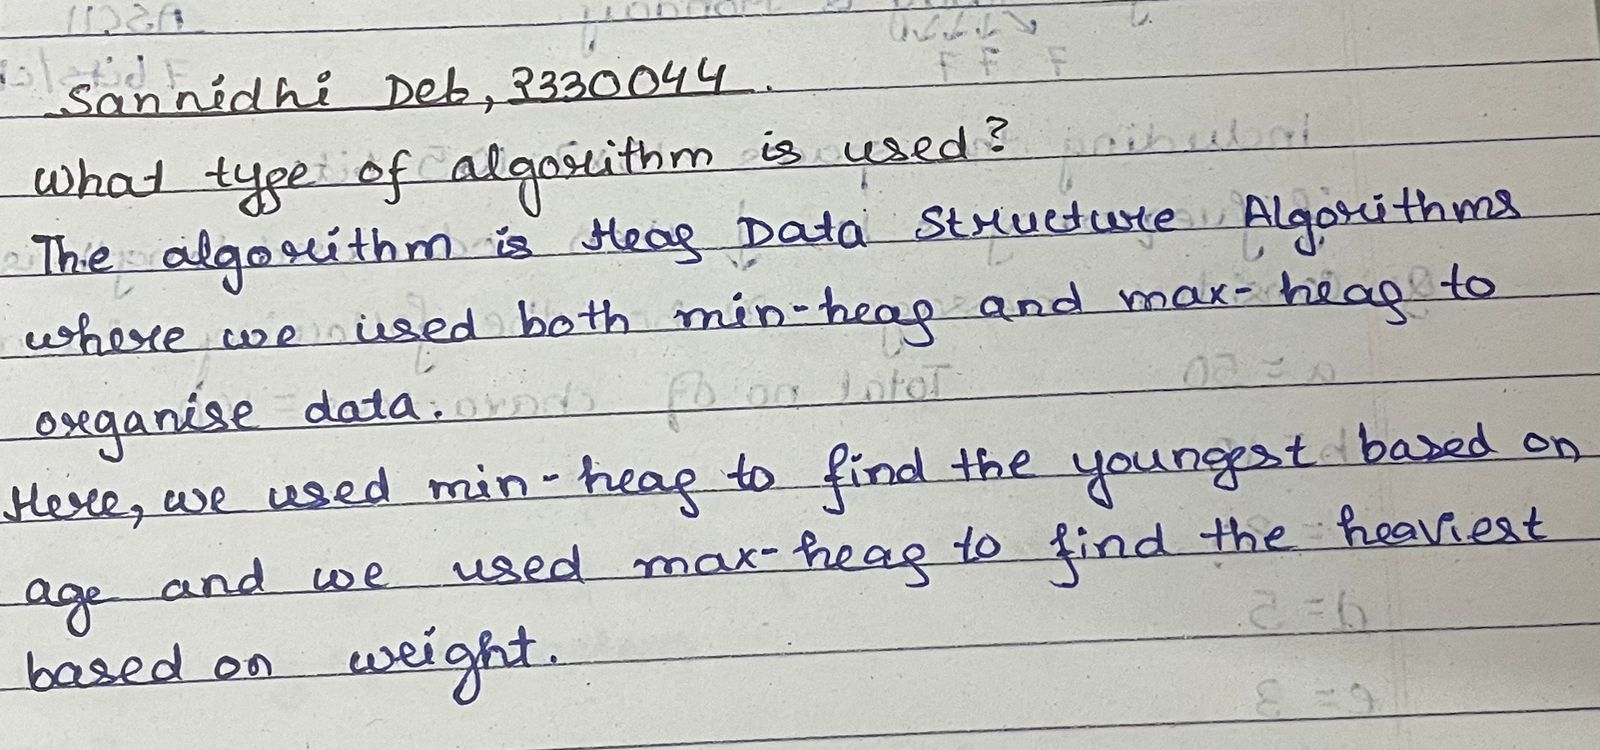 Sannidhi Deb, 2330044.
What type of algorithm is used?
The algorithm is Heap Data Structure Algorithms
where we used both min-heap and max-heap to
organise data.
Here, we used min-heap to find the youngest based on
age and we used max-heap to find the heaviest
based on weight.